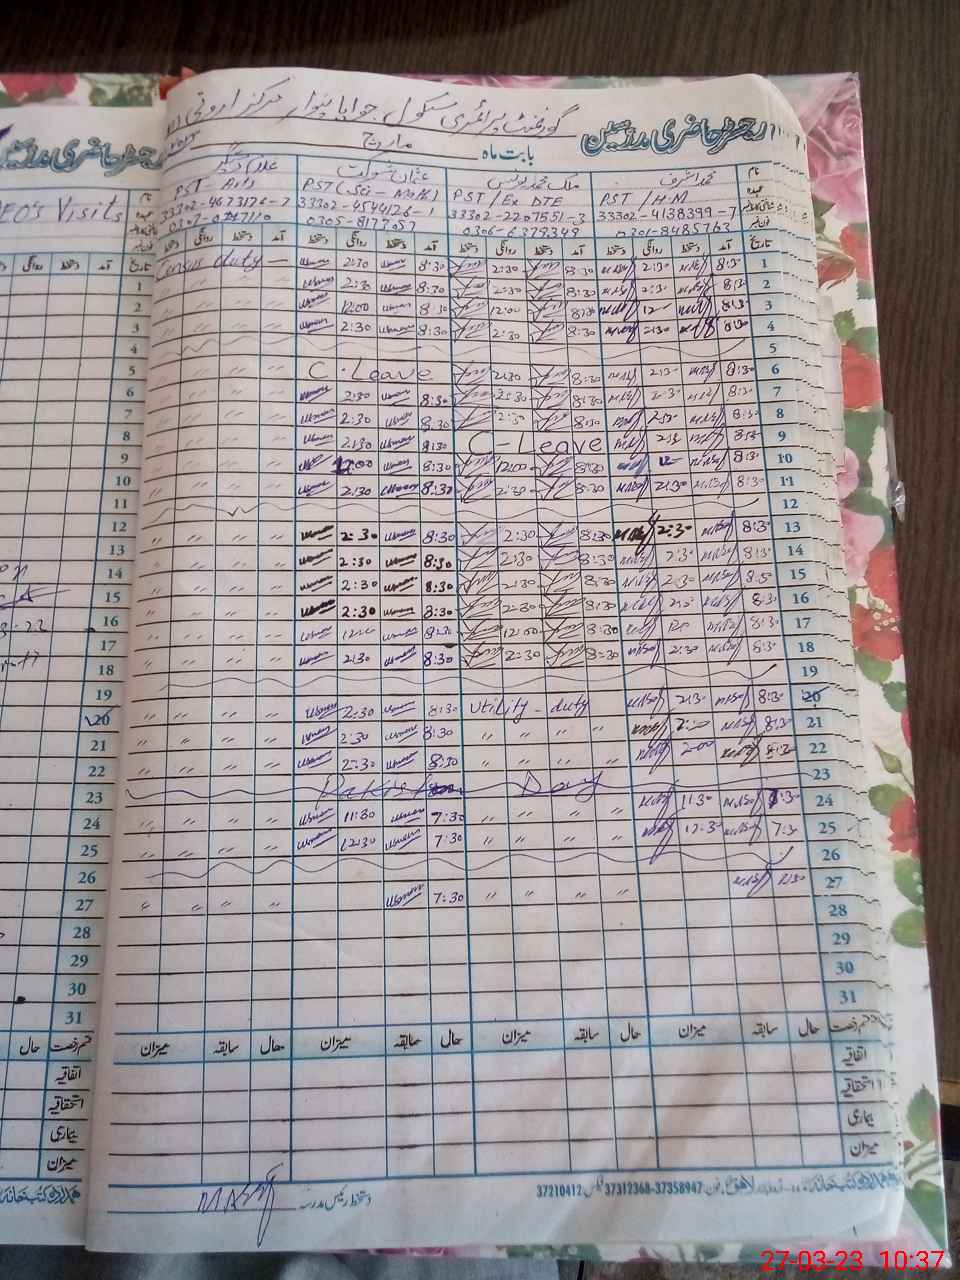 گورنمنٹ پرائمری سکول جوایا پنوار مرکز اروتی
رجسٹر حاضری مدرسین
بابت ماہ مارچ
نام محمد اشرف ملک محمد یونس عثمان شوکت
عہدہ PST / H M PST / Ex DTE PST (Sci - Math) PST - Arts
33302-4138399-7 33302-2207551-3 33302-4544126-1 33302-4673176-7
0301-8485763 0306-6379349 0305-8177057
تاریخ آمد دستخط روانگی دستخط آمد دستخط روانگی دستخط آمد دستخط روانگی دستخط آمد دستخط روانگی دستخط
1 8:30 2:30 8:30 2:30 8:30 2:30 Census duty —
2 8:30 2:30 8:30 2:30 8:30 2:30 " " " "
3 8:30 12 8:30 12:00 8:30 12:00 " " " "
4 8:30 2:30 8:30 2:30 8:30 2:30 " " " "
5
6 8:30 2:30 8:30 2:30 C. Leave " " " "
7 8:30 2:30 8:30 2:30 8:30 2:30 " " " "
8 8:30 2:30 8:30 2:30 8:30 2:30 " " " "
9 8:30 2:30 C - Leave 8:30 2:30 " " " "
10 8:30 12 8:30 12:00 8:30 12:00 " " " "
11 8:30 2:30 8:30 2:30 8:30 2:30 " " " "
12
13 8:30 2:30 8:30 2:30 8:30 2:30 " " " "
14 8:30 2:30 8:30 2:30 8:30 2:30 " " " "
15 8:30 2:30 8:30 2:30 8:30 2:30 " " " "
16 8:30 2:30 8:30 2:30 8:30 2:30 " " " "
17 8:30 8:30 12:00 8:30 " " " "
18 8:30 2:30 8:30 2:30 8:30 2:30 " " " "
19
20 8:30 2:30 Utility - duty 8:30 2:30 " " " "
21 8:30 " " " " 8:30 2:30 " " " "
22 8:30 2:00 " " " " 8:30 2:30 " " " "
23 Pakistan Day
24 11:30 " " " " 7:30 11:30 " " " "
25 7:30 12:30 " " " " 7:30 12:30 " " " "
26
27 " " " " 7:30 " " " "
28
29
30
31
قسم رخصت حال سابقہ میزان حال سابقہ میزان حال سابقہ میزان حال سابقہ میزان
اتفاقیہ
استحقاقیہ
بیماری
میزان
دستخط رئیس مدرسہ
ہمدرد کتب خانہ لاہور فون 37358947-37312368 فیکس 37210412
رجسٹر حاضری مدرسین
EO's Visits
تاریخ آمد دستخط روانگی دستخط
1
2
3
4
5
6
7
8
9
10
11
12
13
14
15
16
17
18
19
20
21
22
23
24
25
26
27
28
29
30
31
قسم رخصت حال
اتفاقیہ
استحقاقیہ
بیماری
میزان
ہمدرد کتب خانہ
27-03-23 10:37